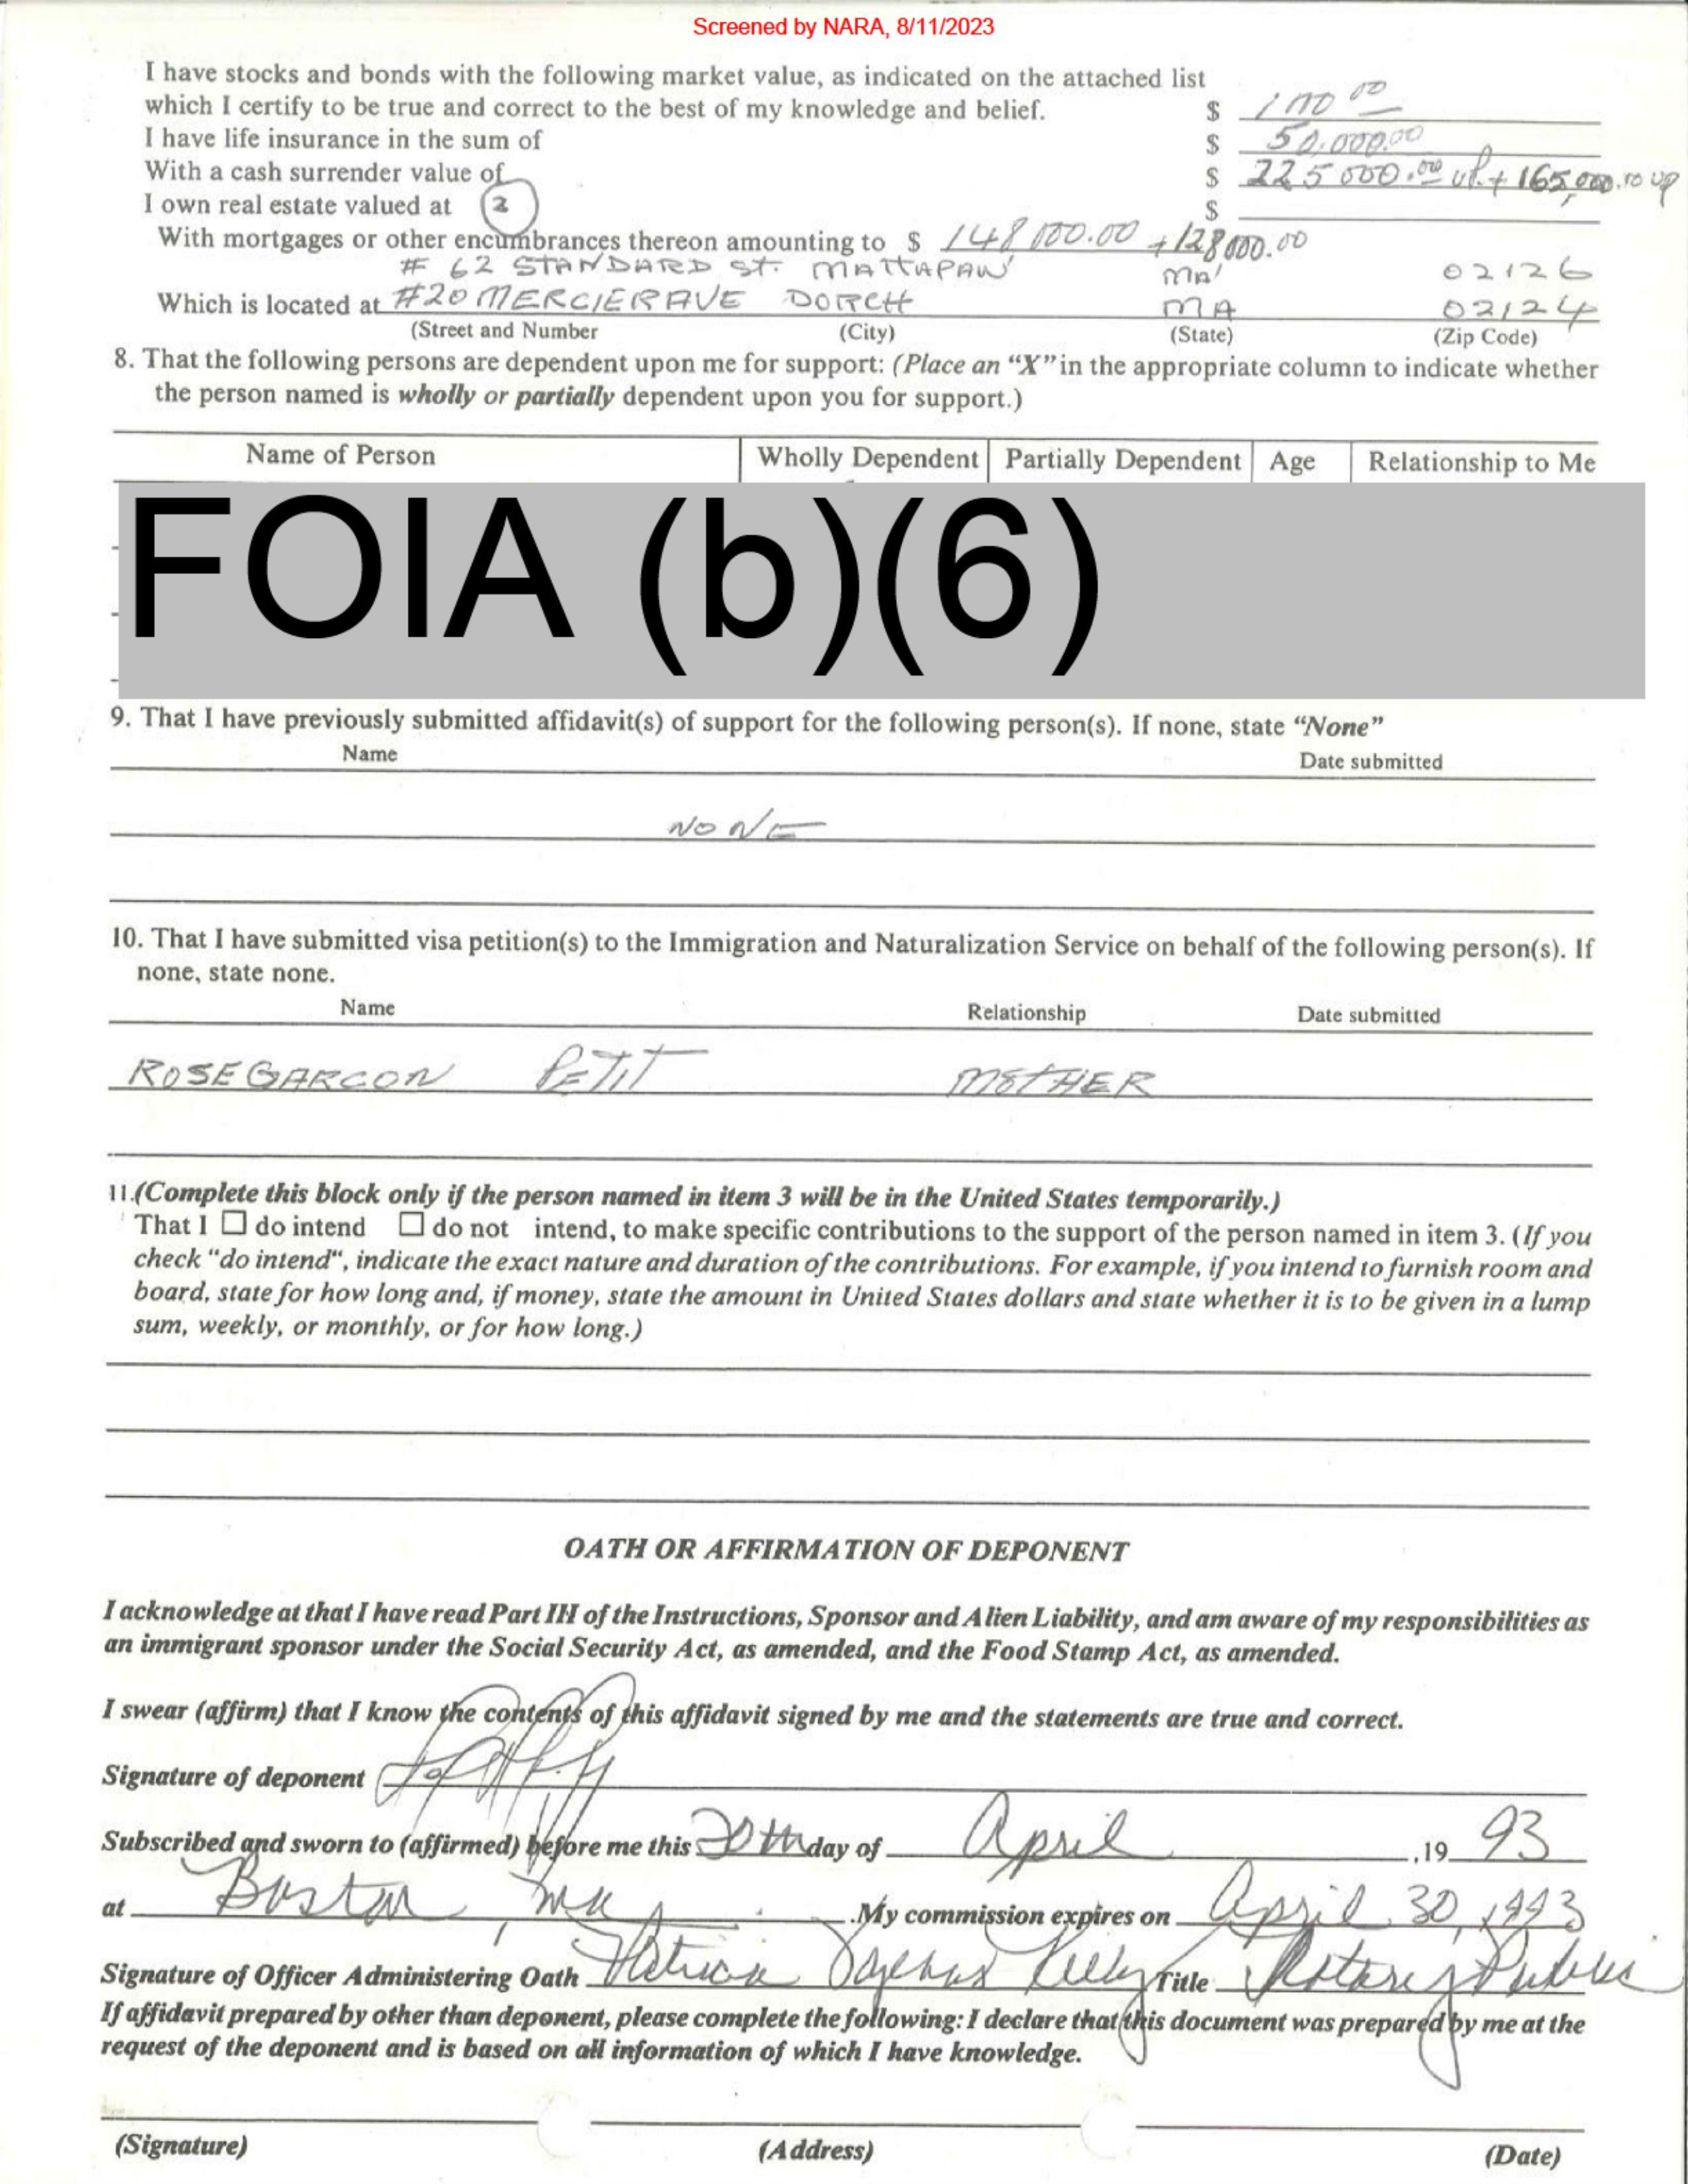 Screened by NARA, 8/11/2023
I have stocks and bonds with the following market value, as indicated on the attached list
which I certify to be true and correct to the best of my knowledge and belief. $
I have life insurance in the sum of $ 50,000.00
With a cash surrender value of $ 225000.00 up + 165,000.00 up
I own real estate valued at 2 $
With mortgages or other encumbrances thereon amounting to $ 148000.00 + 128000.00
# 62 STANDARD St. MATTAPAN MA 02126
Which is located at #20 MERCIER AVE DORCH MA 02124
(Street and Number (City) (State) (Zip Code)
8. That the following persons are dependent upon me for support: (Place an “X” in the appropriate column to indicate whether
the person named is wholly or partially dependent upon you for support.)
Name of Person Wholly Dependent Partially Dependent Age Relationship to Me
FOIA (b)(6)
9. That I have previously submitted affidavit(s) of support for the following person(s). If none, state “None”
Name Date submitted
NONE
10. That I have submitted visa petition(s) to the Immigration and Naturalization Service on behalf of the following person(s). If
none, state none.
Name Relationship Date submitted
ROSE GARCON PETIT MOTHER
11.(Complete this block only if the person named in item 3 will be in the United States temporarily.)
That I ☐ do intend ☐ do not intend, to make specific contributions to the support of the person named in item 3. (If you
check "do intend", indicate the exact nature and duration of the contributions. For example, if you intend to furnish room and
board, state for how long and, if money, state the amount in United States dollars and state whether it is to be given in a lump
sum, weekly, or monthly, or for how long.)
OATH OR AFFIRMATION OF DEPONENT
I acknowledge at that I have read Part III of the Instructions, Sponsor and Alien Liability, and am aware of my responsibilities as
an immigrant sponsor under the Social Security Act, as amended, and the Food Stamp Act, as amended.
I swear (affirm) that I know the contents of this affidavit signed by me and the statements are true and correct.
Signature of deponent
Subscribed and sworn to (affirmed) before me this 20th day of April ,19 93
at Boston, Ma .My commission expires on April 30, 1993
Signature of Officer Administering Oath Patricia Kelly Title Notary Public
If affidavit prepared by other than deponent, please complete the following: I declare that this document was prepared by me at the
request of the deponent and is based on all information of which I have knowledge.
(Signature) (Address) (Date)